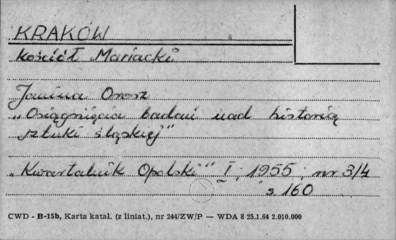 KRAKÓW
Kościół Mariacki
Janina Orosz
„Osiągnięcia badań nad historią
sztuki śląskiej"
„Kwartalnik Opolski" I, 1955, nr 3/4
s. 160
CWD - B-15b, Karta katal. (z liniat.), nr 244/ZW/P — WDA 8 25.1.64 2.010.000